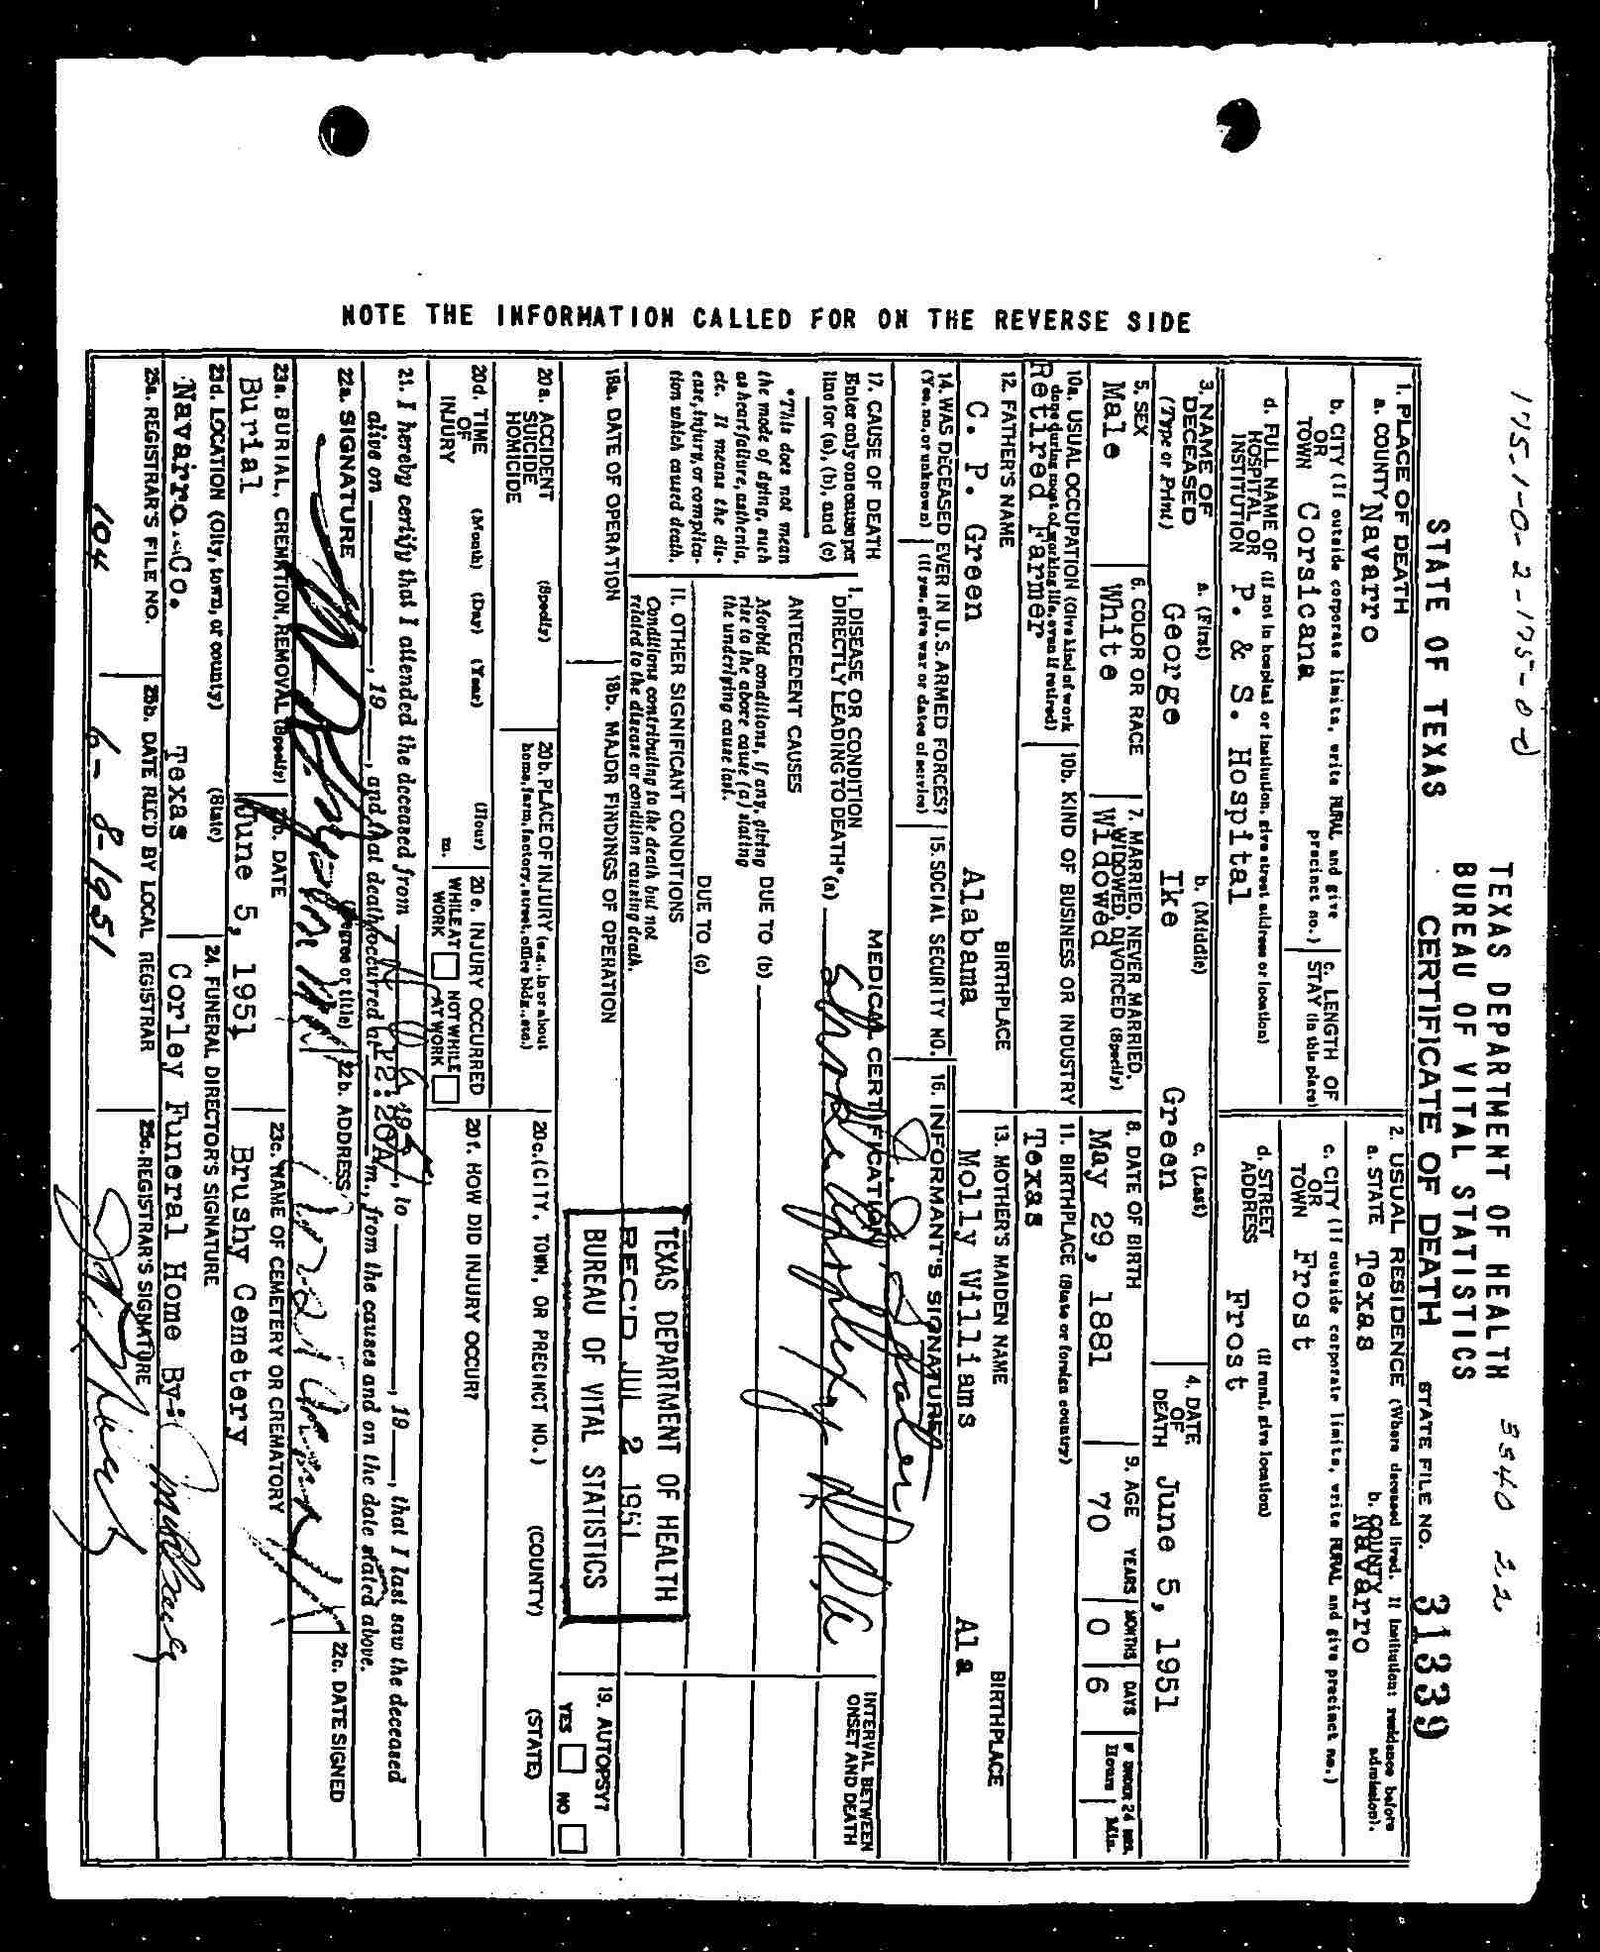 175-1-0-2-175-0-d
TEXAS DEPARTMENT OF HEALTH 3540 22
BUREAU OF VITAL STATISTICS
STATE OF TEXAS CERTIFICATE OF DEATH STATE FILE NO. 31339
1. PLACE OF DEATH
a. COUNTY Navarro
2. USUAL RESIDENCE (Where deceased lived. If institution: residence before admission).
a. STATE Texas b. COUNTY Navarro
b. CITY (If outside corporate limits, write RURAL and give precinct no.) OR TOWN Corsicana
c. LENGTH OF STAY (in this place)
c. CITY (If outside corporate limits, write RURAL and give precinct no.) OR TOWN Frost
d. FULL NAME OF (If not in hospital or institution, give street address or location) HOSPITAL OR INSTITUTION P. & S. Hospital
d. STREET ADDRESS (If rural, give location) Frost
3. NAME OF DECEASED (Type or Print)
a. (First) George b. (Middle) Ike c. (Last) Green
4. DATE OF DEATH June 5, 1951
5. SEX Male
6. COLOR OR RACE White
7. MARRIED, NEVER MARRIED, WIDOWED, DIVORCED (Specify) Widowed
8. DATE OF BIRTH May 29, 1881
9. AGE YEARS 70 MONTHS 0 DAYS 6 IF UNDER 24 HRS. Hours Min.
10a. USUAL OCCUPATION (Give kind of work done during most of working life, even if retired) Retired Farmer
10b. KIND OF BUSINESS OR INDUSTRY
11. BIRTHPLACE (State or foreign country) Texas
12. FATHER'S NAME C. P. Green BIRTHPLACE Alabama
13. MOTHER'S MAIDEN NAME Molly Williams BIRTHPLACE Ala
14. WAS DECEASED EVER IN U.S. ARMED FORCES? (Yes, no, or unknown) (If yes, give war or dates of service)
15. SOCIAL SECURITY NO.
16. INFORMANT'S SIGNATURE
17. CAUSE OF DEATH
Enter only one cause per line for (a), (b), and (c)
*This does not mean the mode of dying, such as heart failure, asthenia, etc. It means the disease, injury, or complication which caused death.
MEDICAL CERTIFICATION
INTERVAL BETWEEN ONSET AND DEATH
I. DISEASE OR CONDITION DIRECTLY LEADING TO DEATH* (a)
ANTECEDENT CAUSES
Morbid conditions, if any, giving rise to the above cause (a) stating the underlying cause last.
DUE TO (b)
DUE TO (c)
II. OTHER SIGNIFICANT CONDITIONS
Conditions contributing to the death but not related to the disease or condition causing death.
TEXAS DEPARTMENT OF HEALTH
REC'D JUL 2 1951
BUREAU OF VITAL STATISTICS
18a. DATE OF OPERATION
18b. MAJOR FINDINGS OF OPERATION
19. AUTOPSY?
YES NO
20a. ACCIDENT SUICIDE HOMICIDE (Specify)
20b. PLACE OF INJURY (e.g., in or about home, farm, factory, street, office bldg., etc.)
20c. (CITY, TOWN, OR PRECINCT NO.) (COUNTY) (STATE)
20d. TIME OF INJURY (Month) (Day) (Year) (Hour) m.
20e. INJURY OCCURRED WHILE AT WORK NOT WHILE AT WORK
20f. HOW DID INJURY OCCUR?
21. I hereby certify that I attended the deceased from , 19 , to , 19 , that I last saw the deceased
alive on , 19 , and that death occurred at 12:20A m., from the causes and on the date stated above.
22a. SIGNATURE (Degree or title)
22b. ADDRESS
22c. DATE SIGNED
23a. BURIAL, CREMATION, REMOVAL (Specify) Burial
23b. DATE June 5, 1951
23c. NAME OF CEMETERY OR CREMATORY Brushy Cemetery
23d. LOCATION (City, town, or county) (State) Navarro Co. Texas
24. FUNERAL DIRECTOR'S SIGNATURE Corley Funeral Home By:
25a. REGISTRAR'S FILE NO. 104
25b. DATE REC'D BY LOCAL REGISTRAR 6-8-1951
25c. REGISTRAR'S SIGNATURE
NOTE THE INFORMATION CALLED FOR ON THE REVERSE SIDE